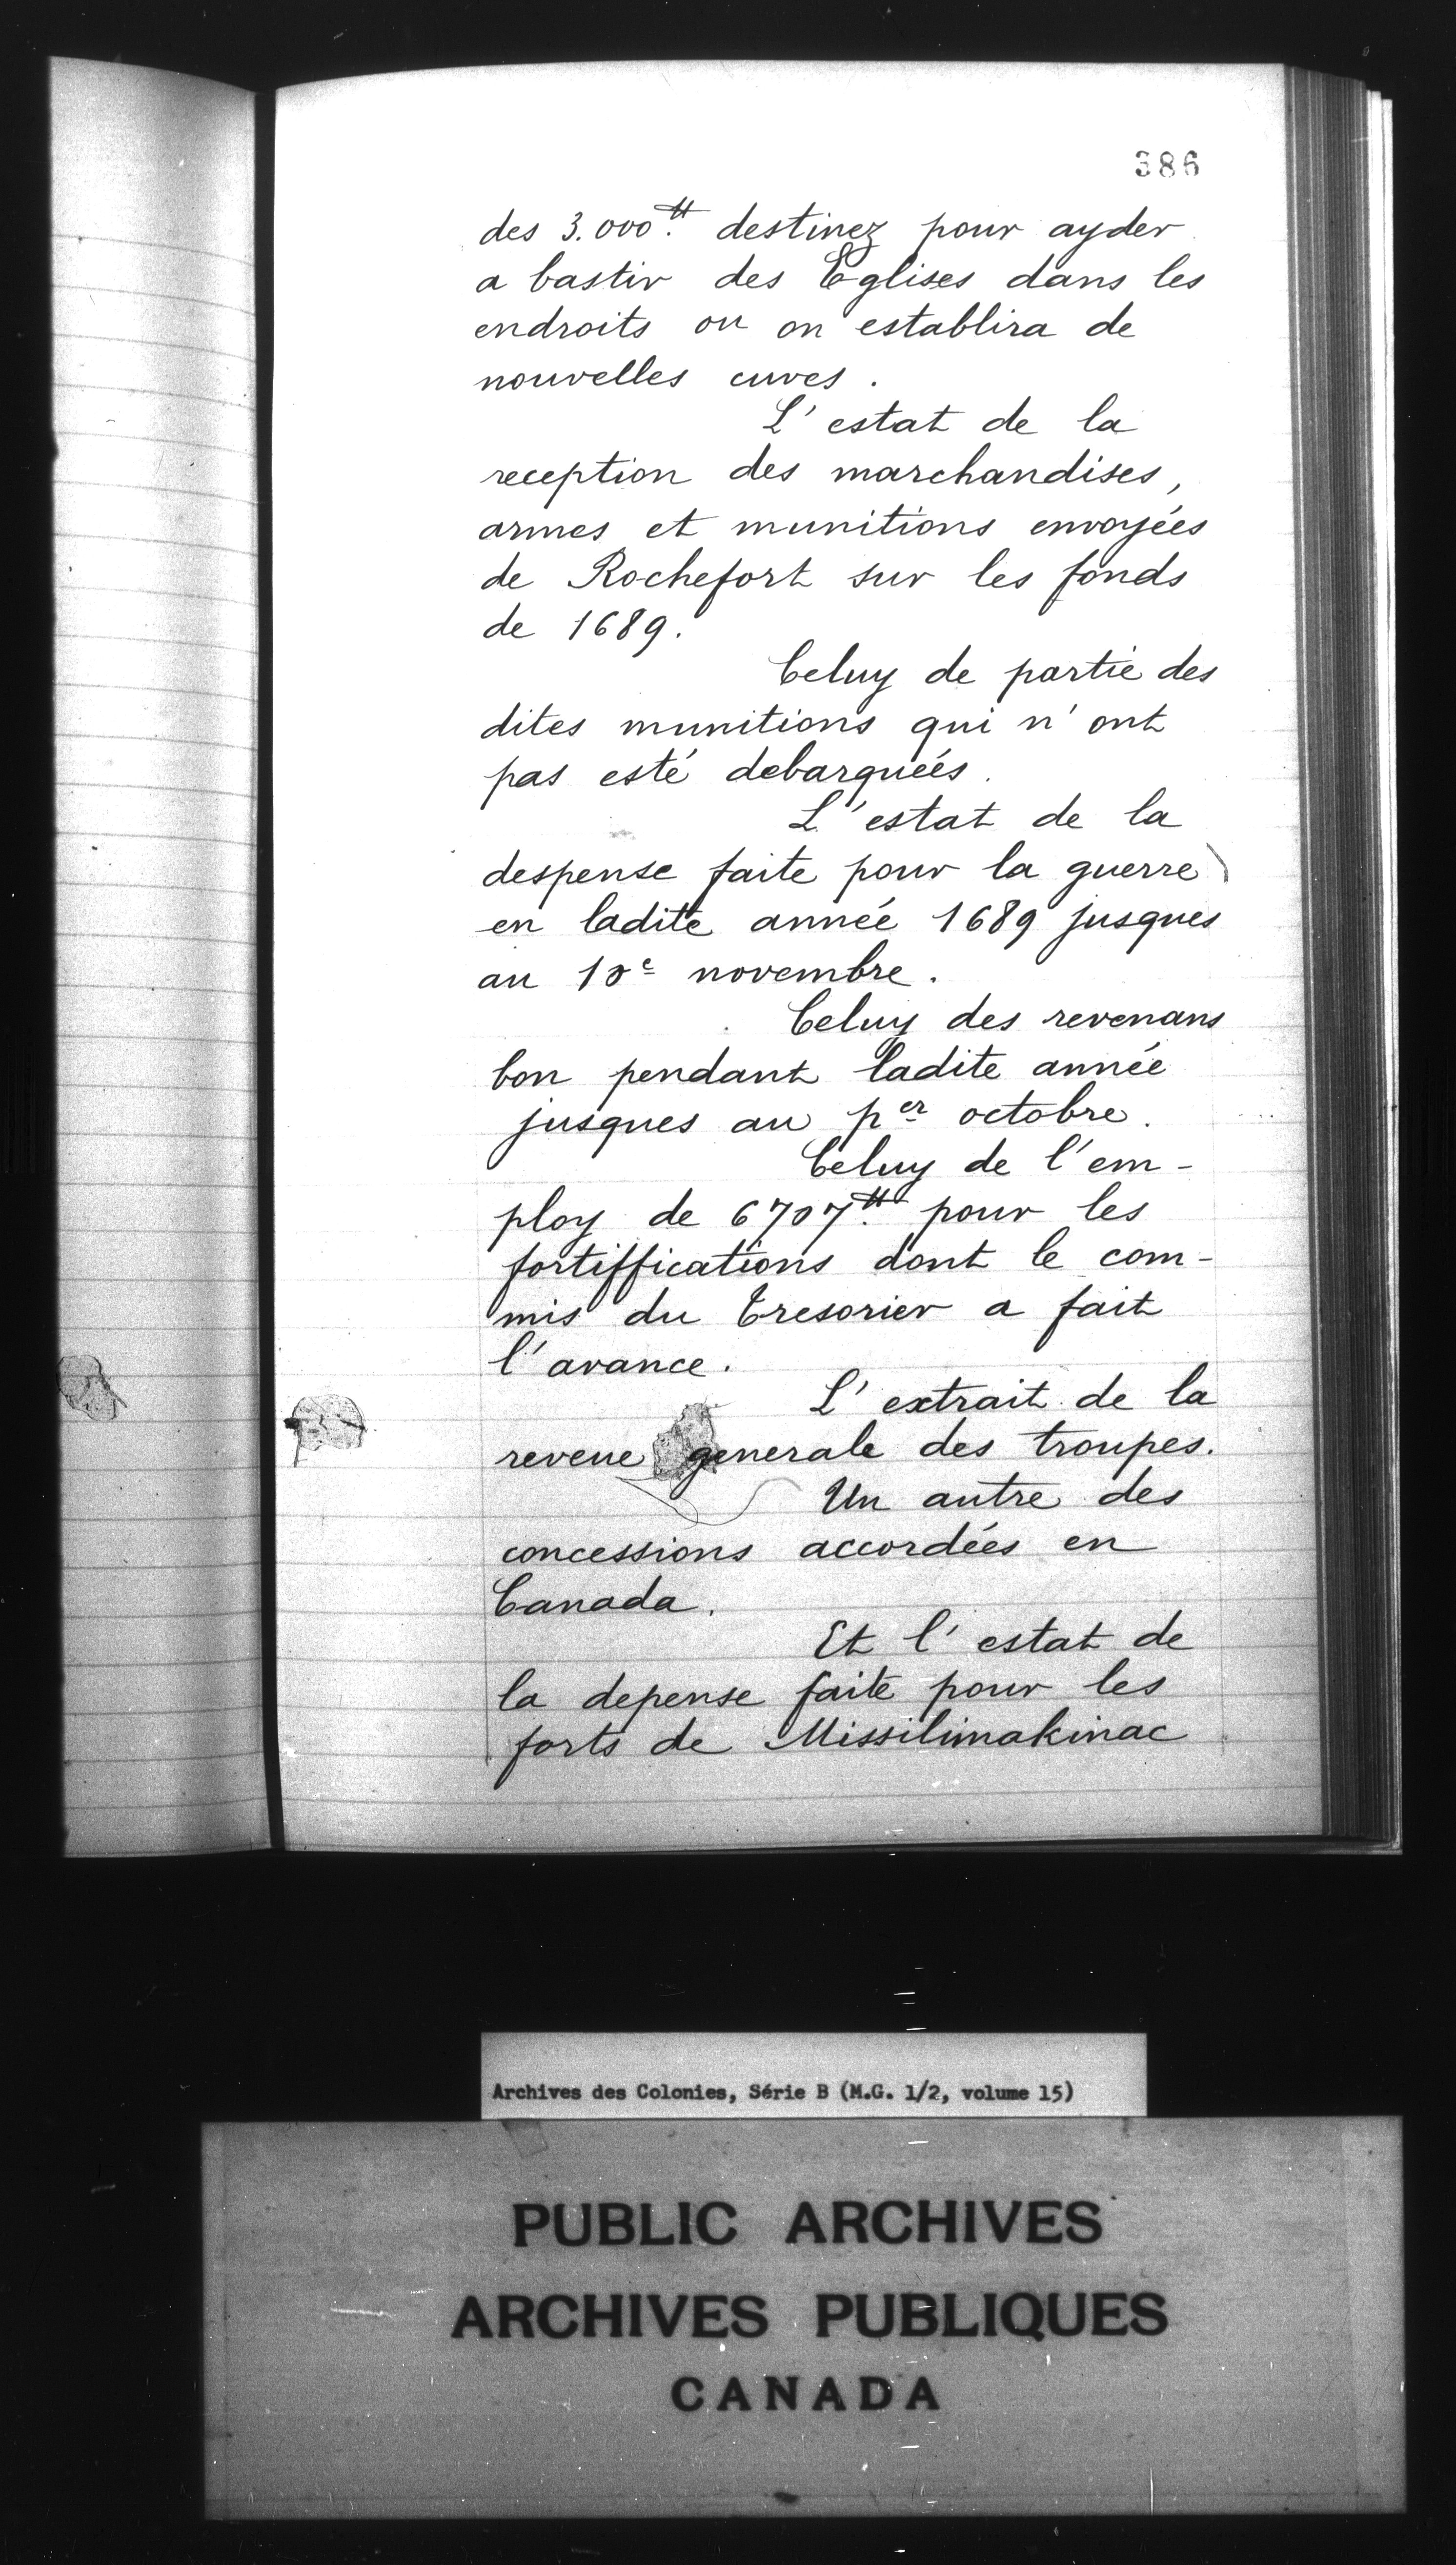 386
des 3.000ᵗᵗ. destinez pour ayder
a bastir des Eglises dans les
endroits ou on establira de
nouvelles cures.
L'estat de la
reception des marchandises,
armes et munitions envoyées
de Rochefort sur les fonds
de 1689.
Celuy de partie des
dites munitions qui n'ont
pas esté debarquées.
L'estat de la
despense faite pour la guerre
en ladite année 1689 jusques
au 10ᵉ novembre.
Celuy des revenans
bon pendant ladite année
jusques au pᵉʳ octobre.
Celuy de l'em-
ploy de 6707ᵗᵗ. pour les
fortiffications dont le com-
mis du tresorier a fait
l'avance.
L'extrait de la
reveue generale des troupes.
Un autre des
concessions accordées en
Canada.
Et l'estat de
la depense faite pour les
forts de Missilimakinac
Archives des Colonies, Série B (M.G. 1/2, volume 15)
PUBLIC ARCHIVES
ARCHIVES PUBLIQUES
CANADA